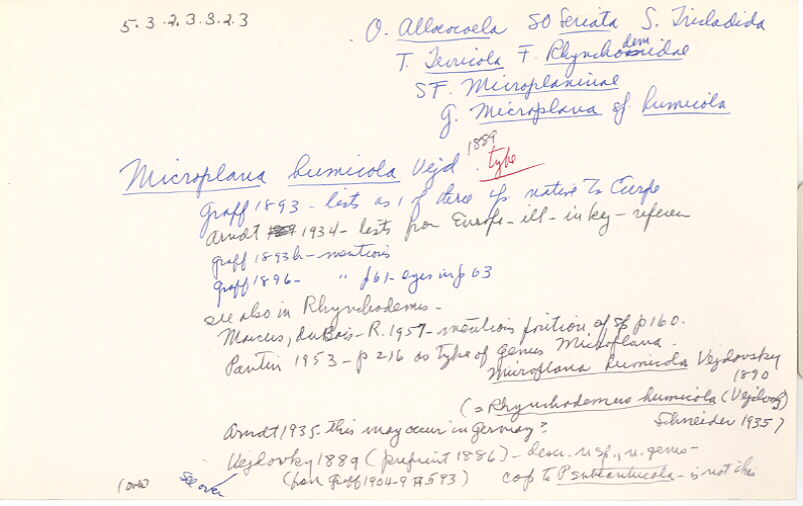 5.3.2.3.3.2.3
O. Alloeocoela SO Seriata S. Tricladida
T. Terricola F. Rhynchodemidae
SF. Microplaninae
G. Microplana sp. humicola
Microplana humicola Vejd 1889 type
Graff 1893 - lists as 1 of three sp native to Europe
Arndt 1934 - lists from Europe - ill - in key - referen
Graff 1893b - mentions
Graff 1896 - " p61 - eyes in p 63
see also in Rhynchodemus -
Marcus, duBois-R. 1957 - mentions position of sp p160.
Pantin 1953 - p 216 as type of genus Microplana.
Microplana humicola Vejdovsky
1890
(= Rhynchodemus humicola (Vejdovsky)
Schneider 1935)
Arndt 1935 - this may occur in Germany?
Vejdovky 1889 (preprint 1886) - descr. n sp., n. genus -
(from Graff 1904-9 # 593) cop to - is not this
(over) see over